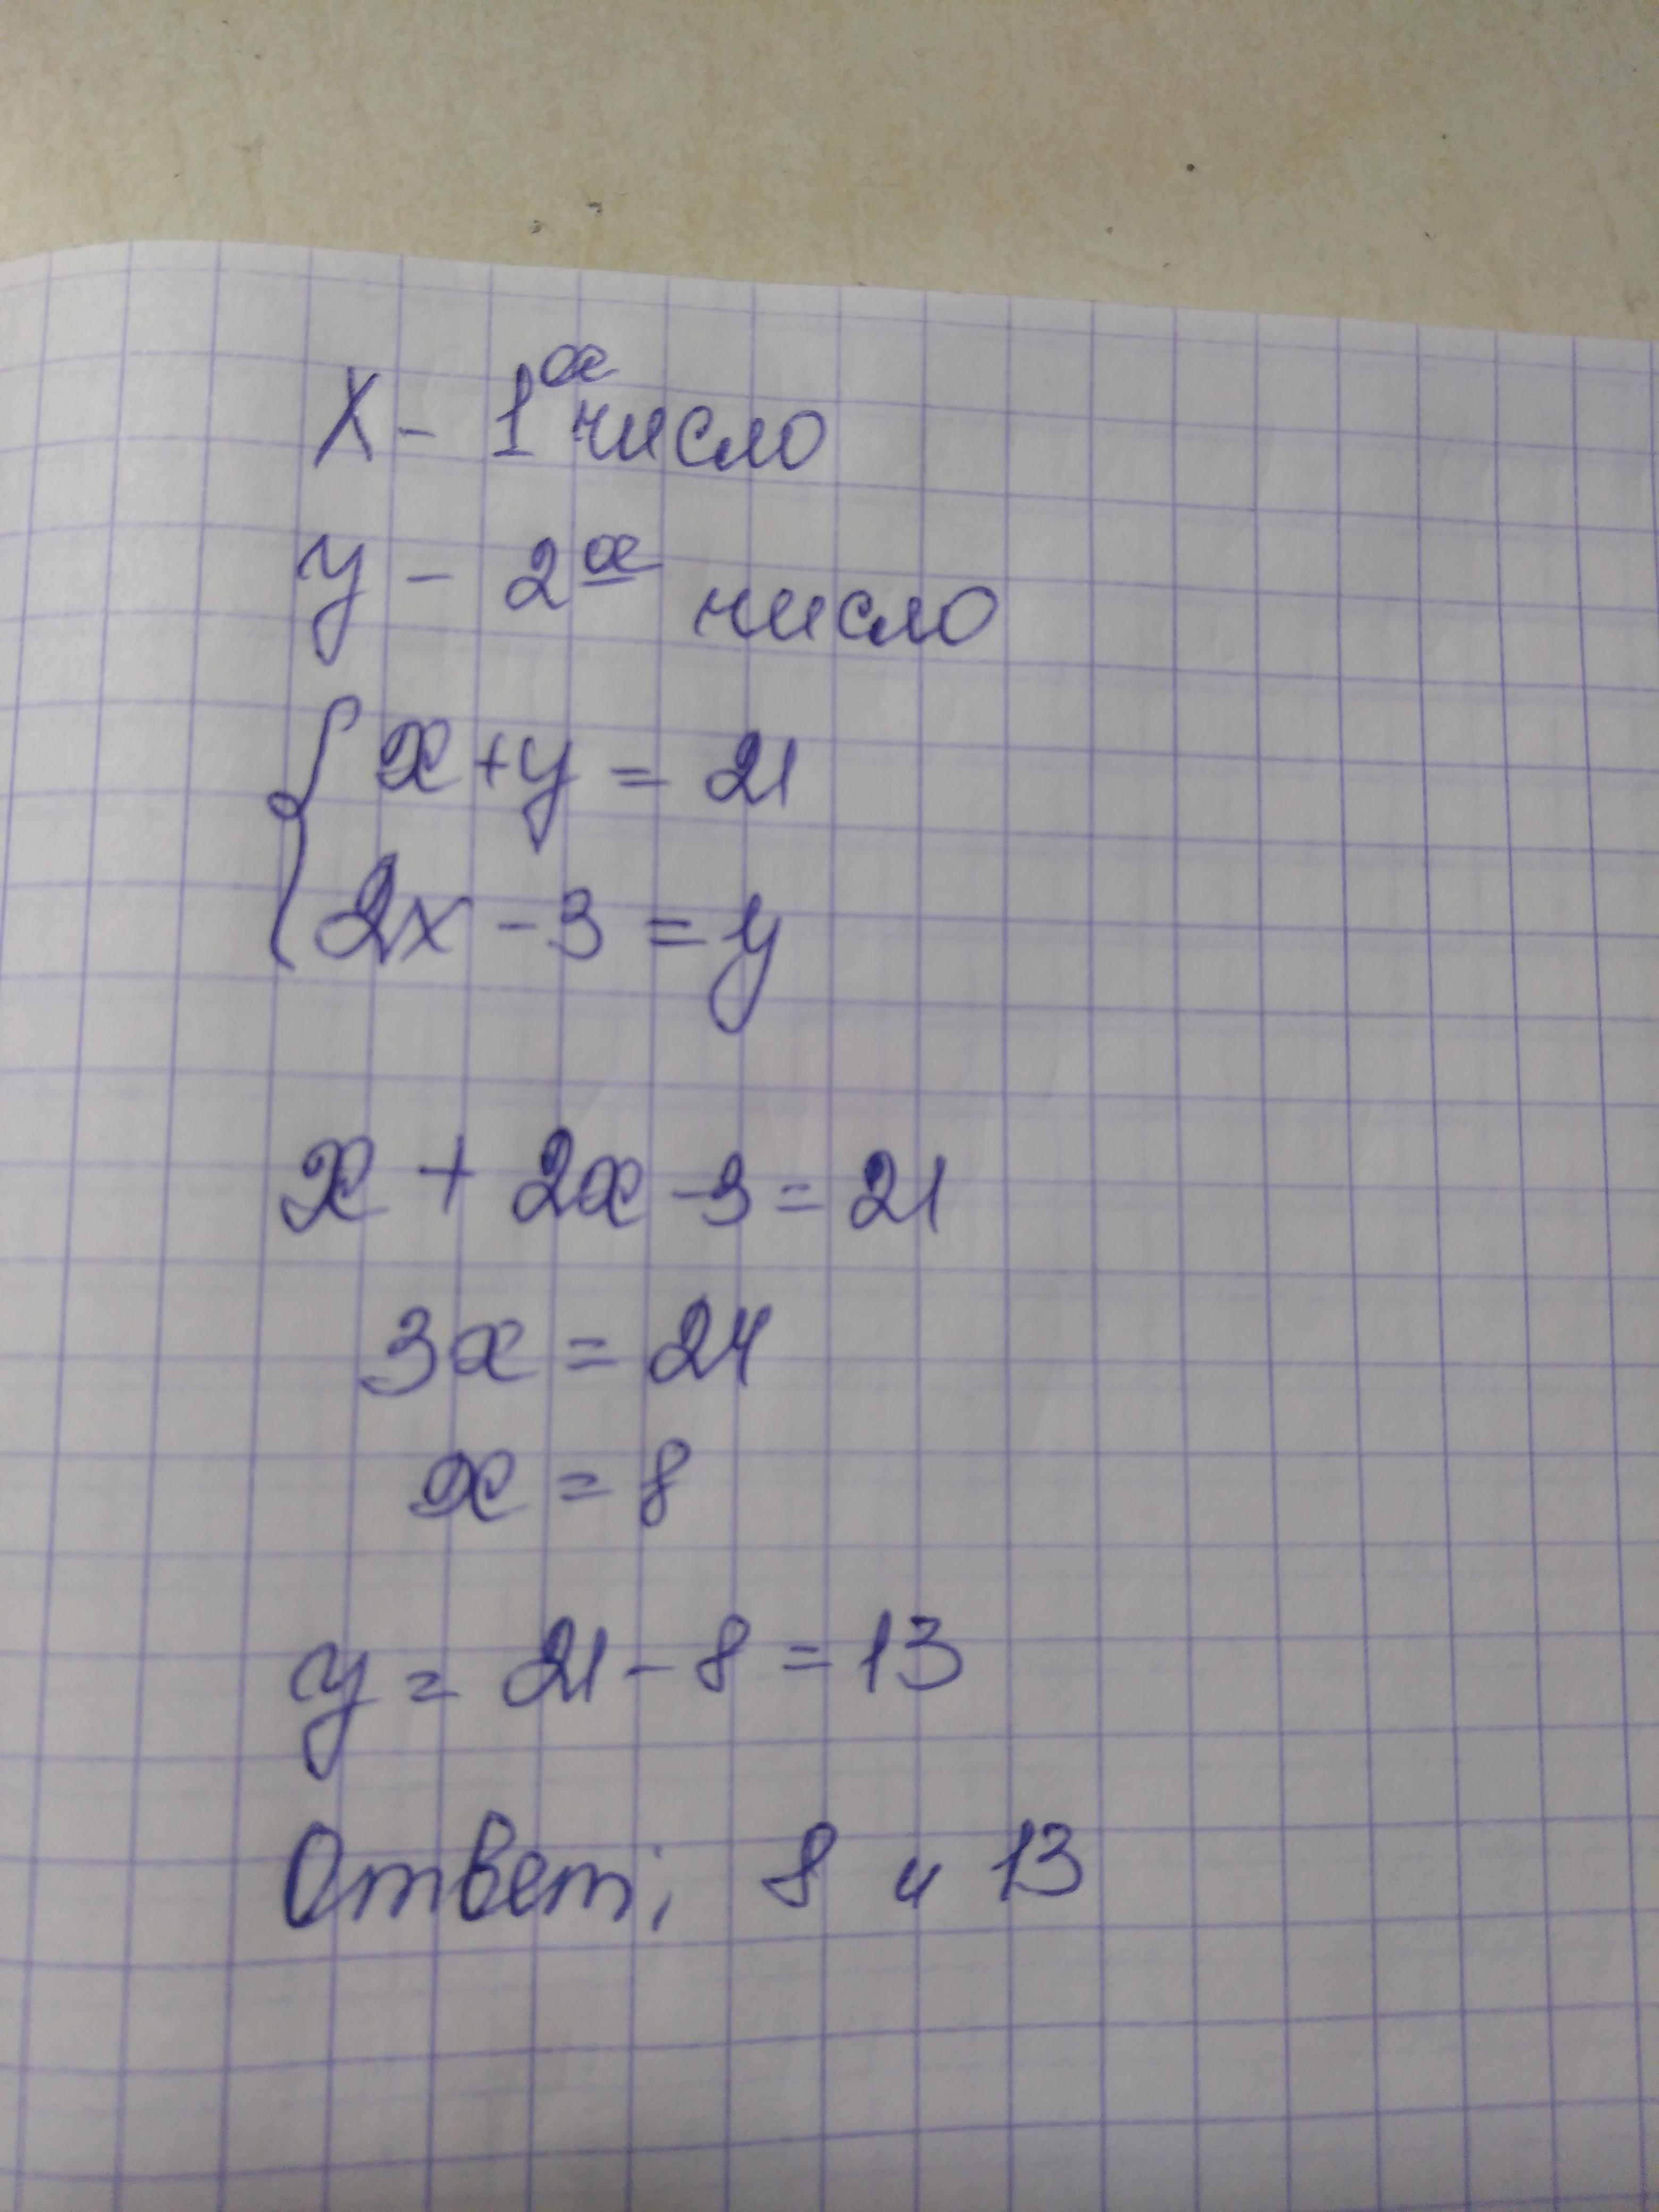 X - 1ое число
y - 2ое число
{ x + y = 21
2x - 3 = y
x + 2x - 3 = 21
3x = 24
x = 8
y = 21 - 8 = 13
Ответ; 8 и 13